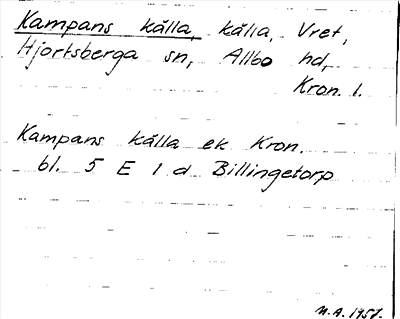 Kampans källa, källa, Vret,
Hjortsberga sn, Allbo hd,
Kron. l.
Kampans källa ek Kron.
bl. 5 E 1 d Billingetorp
N.A. 1958.